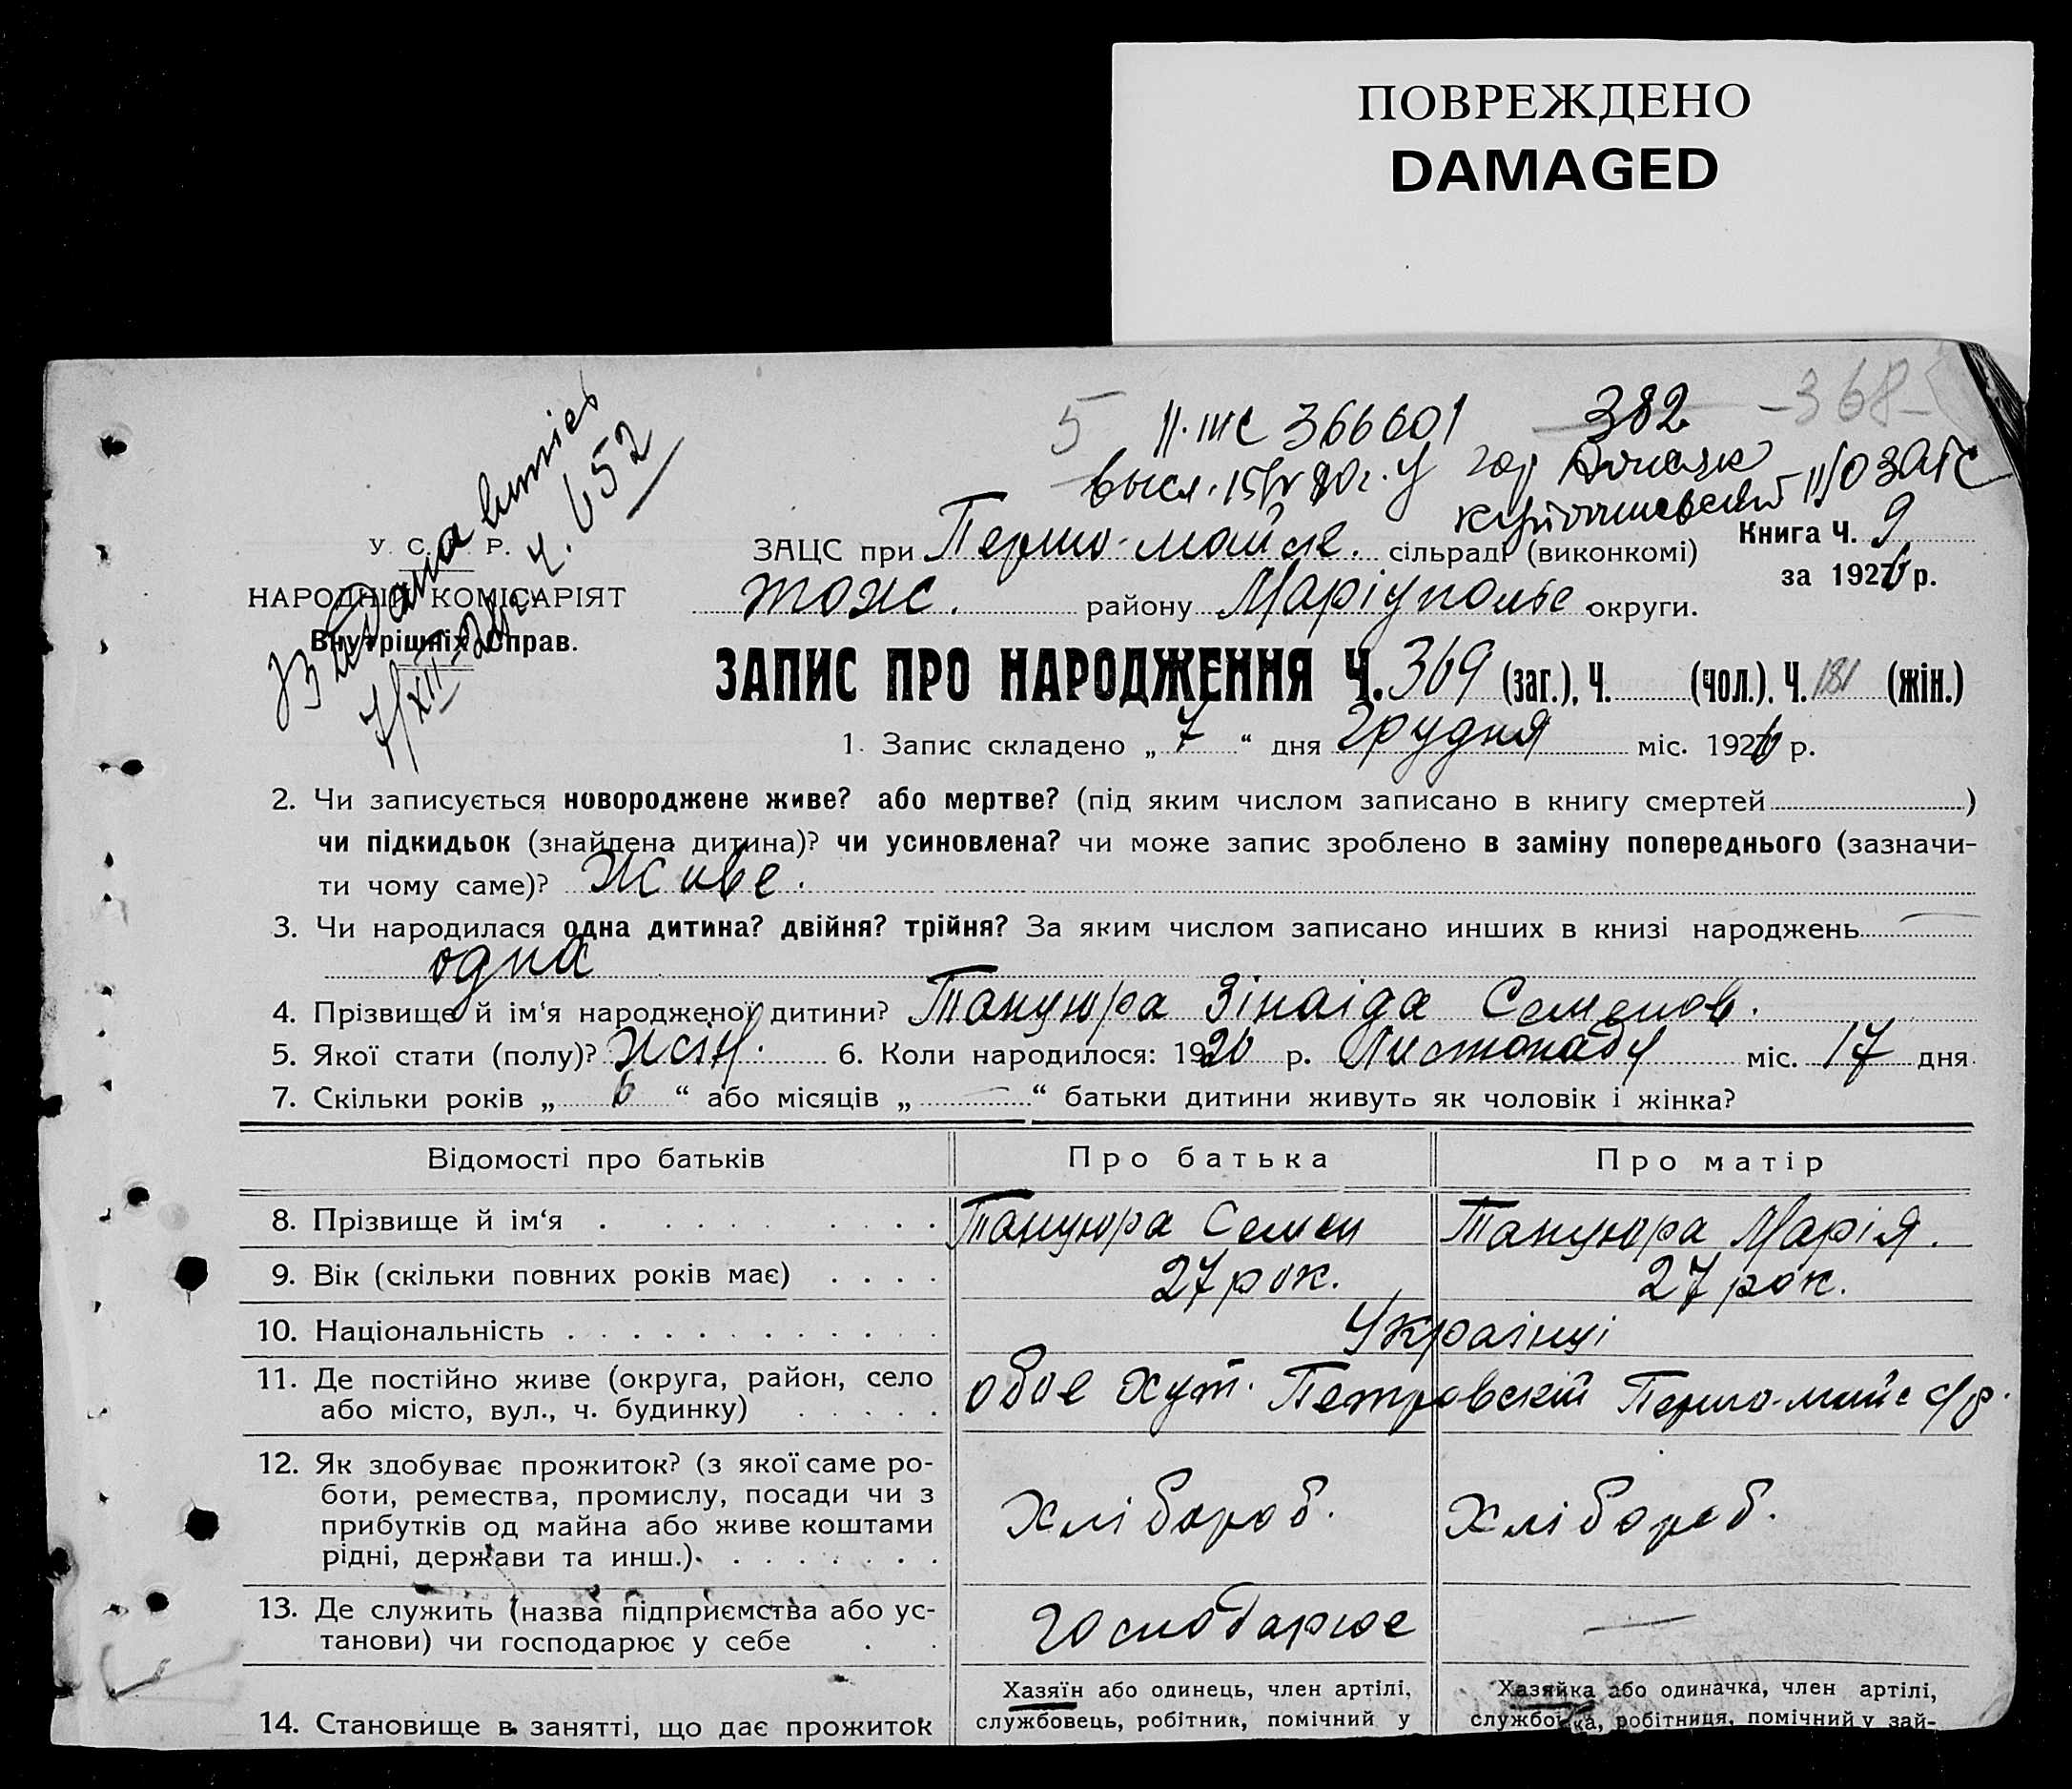 ПОВРЕЖДЕНО
DAMAGED
5
382
-368-
II. ШС 366601
высл. 15/IV 80г. гор Донецк
ЗАГС
Видана витяг
7/XII-26 Ч. 652
У. С. Р. Р.
НАРОДНІЙ КОМІСАРІЯТ
Внутрішніх Справ.
ЗАЦС при Першо-майске. сільраді (виконкомі)
Книга Ч. 9
за 1926 р.
тож. району Маріупольс округи.
ЗАПИС ПРО НАРОДЖЕННЯ Ч. 369 (заг.), Ч. (чол.). Ч. 181 (жін.)
1. Запис складено „ 7 “ дня Грудня міс. 1926 р.
2. Чи записується новороджене живе? або мертве? (під яким числом записано в книгу смертей )
чи підкидьок (знайдена дитина)? чи усиновлена? чи може запис зроблено в заміну попереднього (зазначи-
ти чому саме)? Живе.
3. Чи народилася одна дитина? двійня? трійня? За яким числом записано инших в книзі народжень —
одна
4. Прізвище й ім‘я народженої дитини? Танцюра Зінаіда Семенов.
5. Якої стати (полу)? Жін. 6. Коли народилося: 1926 р. Листопаду міс. 17 дня
7. Скільки років „ 6 “ або місяців „ — “ батьки дитини живуть як чоловік і жінка?
Відомості про батьків Про батька Про матір
8. Прізвище й ім‘я Танцюра Семен Танцюра Марія.
9. Вік (скільки повних років має) 27 рок. 27 рок.
10. Національність Українці
11. Де постійно живе (округа, район, село
або місто, вул., ч. будинку)
обое хут. Петровскій Першо-майс с/р.
12. Як здобуває прожиток? (з якої саме ро-
боти, ремества, промислу, посади чи з
прибутків од майна або живе коштами
рідні, держави та инш.)
Хлібороб. Хлібороб.
13. Де служить (назва підприємства або ус-
танови) чи господарює у себе
господарює —
14. Становище в занятті, що дає прожиток
Хазяїн або одинець, член артілі,
службовець, робітник, помічний у
Хазяйка або одиначка, член артілі,
службовка, робітниця, помічний у зай-